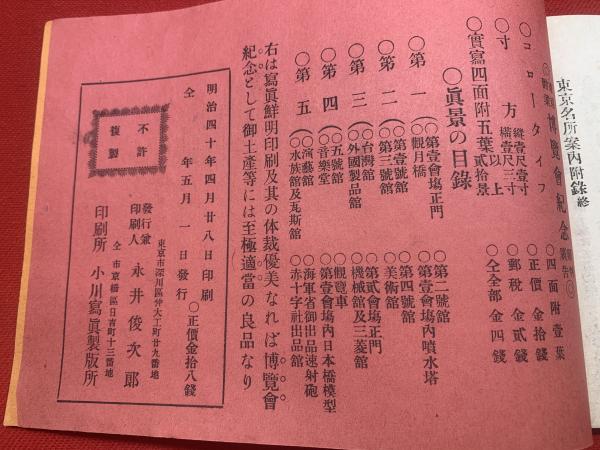 東京名所案內附錄終
博覽會紀念
○コロータイプ
○四面附壹葉
○正價 金拾錢
○郵稅 金貳錢
○仝全部 金四錢
○寸方 縱壹尺壹寸 橫壹尺三寸 以上
○實寫四面附五葉貳拾景
○眞景の目錄
○第一 (○第壹會場正門 ○第二號館
○觀月橋 ○第壹會場內噴水塔
○第二 (○第壹號館 ○第四號館
○第三號館 ○美術館
○第三 (○台灣館 ○第貳會場正門
○外國製品館 ○機械館及三菱館
○第四 (○五號館 ○觀覽車
○音樂堂 ○第壹會場內日本橋模型
○第五 (○演藝館 ○海軍省御出品速射砲
○水族館及瓦斯館 ○赤十字社出品館
右は寫眞鮮明印刷及其の体裁優美なれば博覽會
紀念として御土產等には至極適當の良品なり
明治四十年四月廿八日印刷 ○正價金拾八錢
仝 年五月 一日發行
不許複製
東京市深川區仲大工町廿九番地
發行兼印刷人 永井俊次郎
仝市京橋區日吉町十三番地
印刷所 小川寫眞製版所